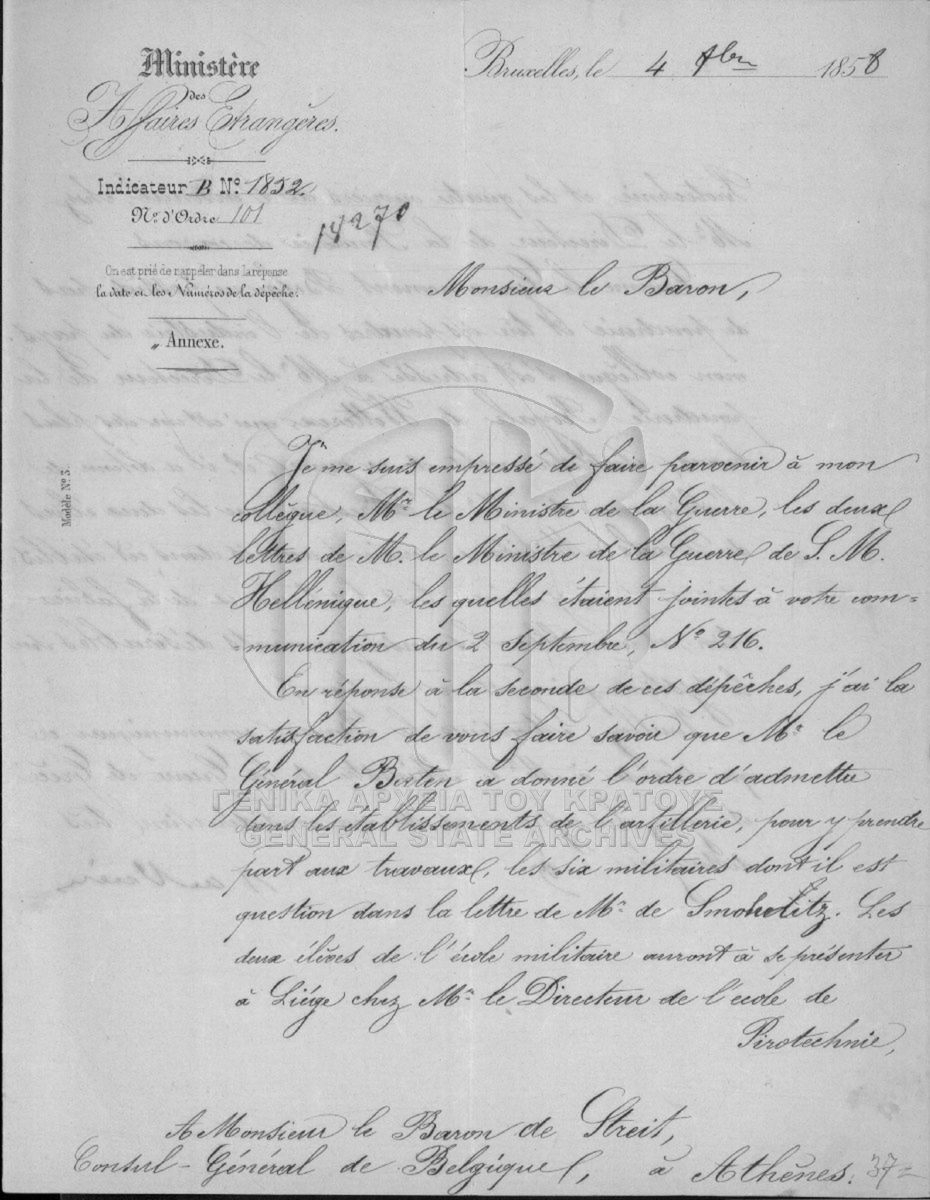 Ministère
des
Affaires Etrangères.
Bruxelles, le 4 9bre 1858
Indicateur B No. 1852.
No. d'Ordre 101
18270
On est prié de rappeler dans la réponse
la date et les Numéros de la dépêche.
„ Annexe.
Modèle No 3.
Monsieur le Baron,
Je me suis empressé de faire parvenir à mon
collègue, Mr. le Ministre de la Guerre, les deux
lettres de M. le Ministre de la Guerre de S. M.
Hellénique, les quelles étaient jointes à votre com=
munication du 2 Septembre, No 216.
En réponse à la seconde de ces dépêches, j'ai la
satisfaction de vous faire savoir que Mr. le
Général Berten a donné l'ordre d'admettre
dans les établissements de l'artillerie, pour y prendre
part aux travaux, les six militaires dont il est
question dans la lettre de Mr. de Smoheltitz. Les
deux élèves de l'école militaire auront à se présenter
à Liége chez Mr. le Directeur de l'école de
Pirotechnie,
A Monsieur le Baron de Streit,
Consul-Général de Belgique, à Athènes.
37=
ΓΕΝΙΚΑ ΑΡΧΕΙΑ ΤΟΥ ΚΡΑΤΟΥΣ
GENERAL STATE ARCHIVES